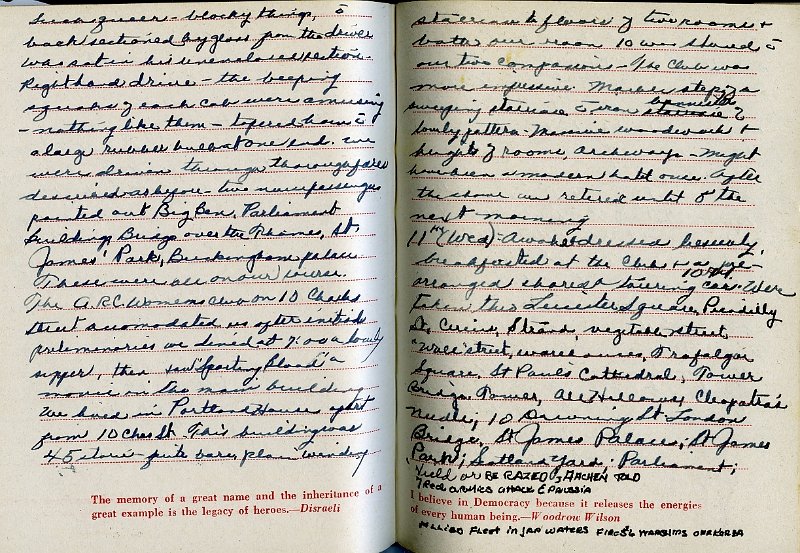 such queer - blocky things, c̄
back sectioned by glass from the driver
was sat in his unenclosed section.
Right hand drive - the beeping
squeaks of each cab were amusing
- nothing like them - tapered horn c̄
a large rubber bulb at one end. We
were driven through thoroughfares
described as by you - two new passengers
pointed out Big Ben, Parliament
Building, Bridge over the Thames, St.
James' Park, Buckingham palace.
These were all on our course.
The A.R.C. Womens Club on 10 Charles
Street accomodated us after initial
preliminaries we dined at 7:00 a lovely
supper, then saw "Sporting Blood" a
movie in the main building
We lived in Portland House apart
from 10 Chas St. This building was
45 stone - quite bare, plain winding
The memory of a great name and the inheritance of a
great example is the legacy of heroes.—Disraeli
staircase to floors of two rooms +
baths our room 10 was shared c̄
our two companions - The Club was
more impressive. Marble steps, a
sweeping staircase c̄ iron banister of
lovely pattern - Massive woodwork +
height of rooms, archways - might
have been a modern hall once. After
the show we retired until 8 the
next morning
11th (Wed) - Awoke dressed leisurely,
breakfasted at the Club + a pre-
arranged shared 10 sh. touring car. Were
taken thru Leicester Square, Piccadilly
St, Circus, Strand, vegetable street,
"Wall" street, warehouses, Trafalgar
Square, St Pauls Cathedral, Tower
Bridge, Tower, All Hallows, Cleopatra's
Needle, 10 Downing St. London
Bridge, St James Palace, St James
Park; Scotland Yard; Parliament;
Yield or BE RAZED, AACHEN TOLD
2 RED armies attack E PRUSSIA
I believe in Democracy because it releases the energies
of every human being.—Woodrow Wilson
Allied Fleet in JAP WATERS FIRES WARSHIPS OFF KOREA